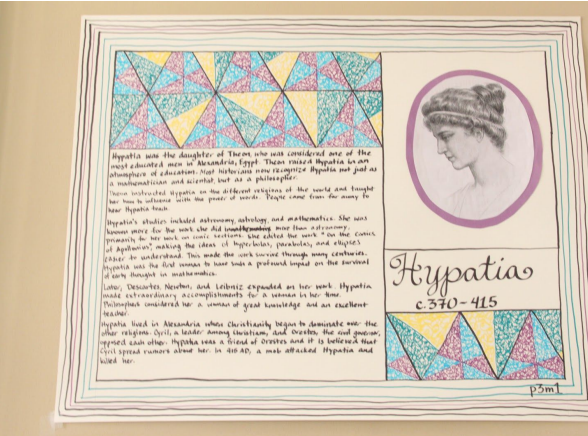 Hypatia was the daughter of Theon, who was considered one of the
most educated men in Alexandria, Egypt. Theon raised Hypatia in an
atmosphere of education. Most historians now recognize Hypatia not just as
a mathematician and scientist, but as a philosopher.
Theon instructed Hypatia on the different religions of the world and taught
her how to influence with the power of words. People came from far away to
hear Hypatia teach.
Hypatia's studies included astronomy, astrology, and mathematics. She was
known more for the work she did in mathematics more than astronomy,
primarily for her work on conic sections. She edited the work "On the Conics
of Apollonius", making the ideas of hyperbolas, parabolas, and ellipses
easier to understand. This made the work survive through many centuries.
Hypatia was the first woman to have such a profound impact on the survival
of early thought in mathematics.
Later, Descartes, Newton, and Leibniz expanded on her work. Hypatia
made extraordinary accomplishments for a woman in her time.
Philosophers considered her a woman of great knowledge and an excellent
teacher.
Hypatia lived in Alexandria when Christianity began to dominate over the
other religions. Cyril, a leader among Christians, and Orestes, the civil governor,
opposed each other. Hypatia was a friend of Orestes and it is believed that
Cyril spread rumors about her. In 415 AD, a mob attacked Hypatia and
killed her.
Hypatia
c.370-415
p3m1